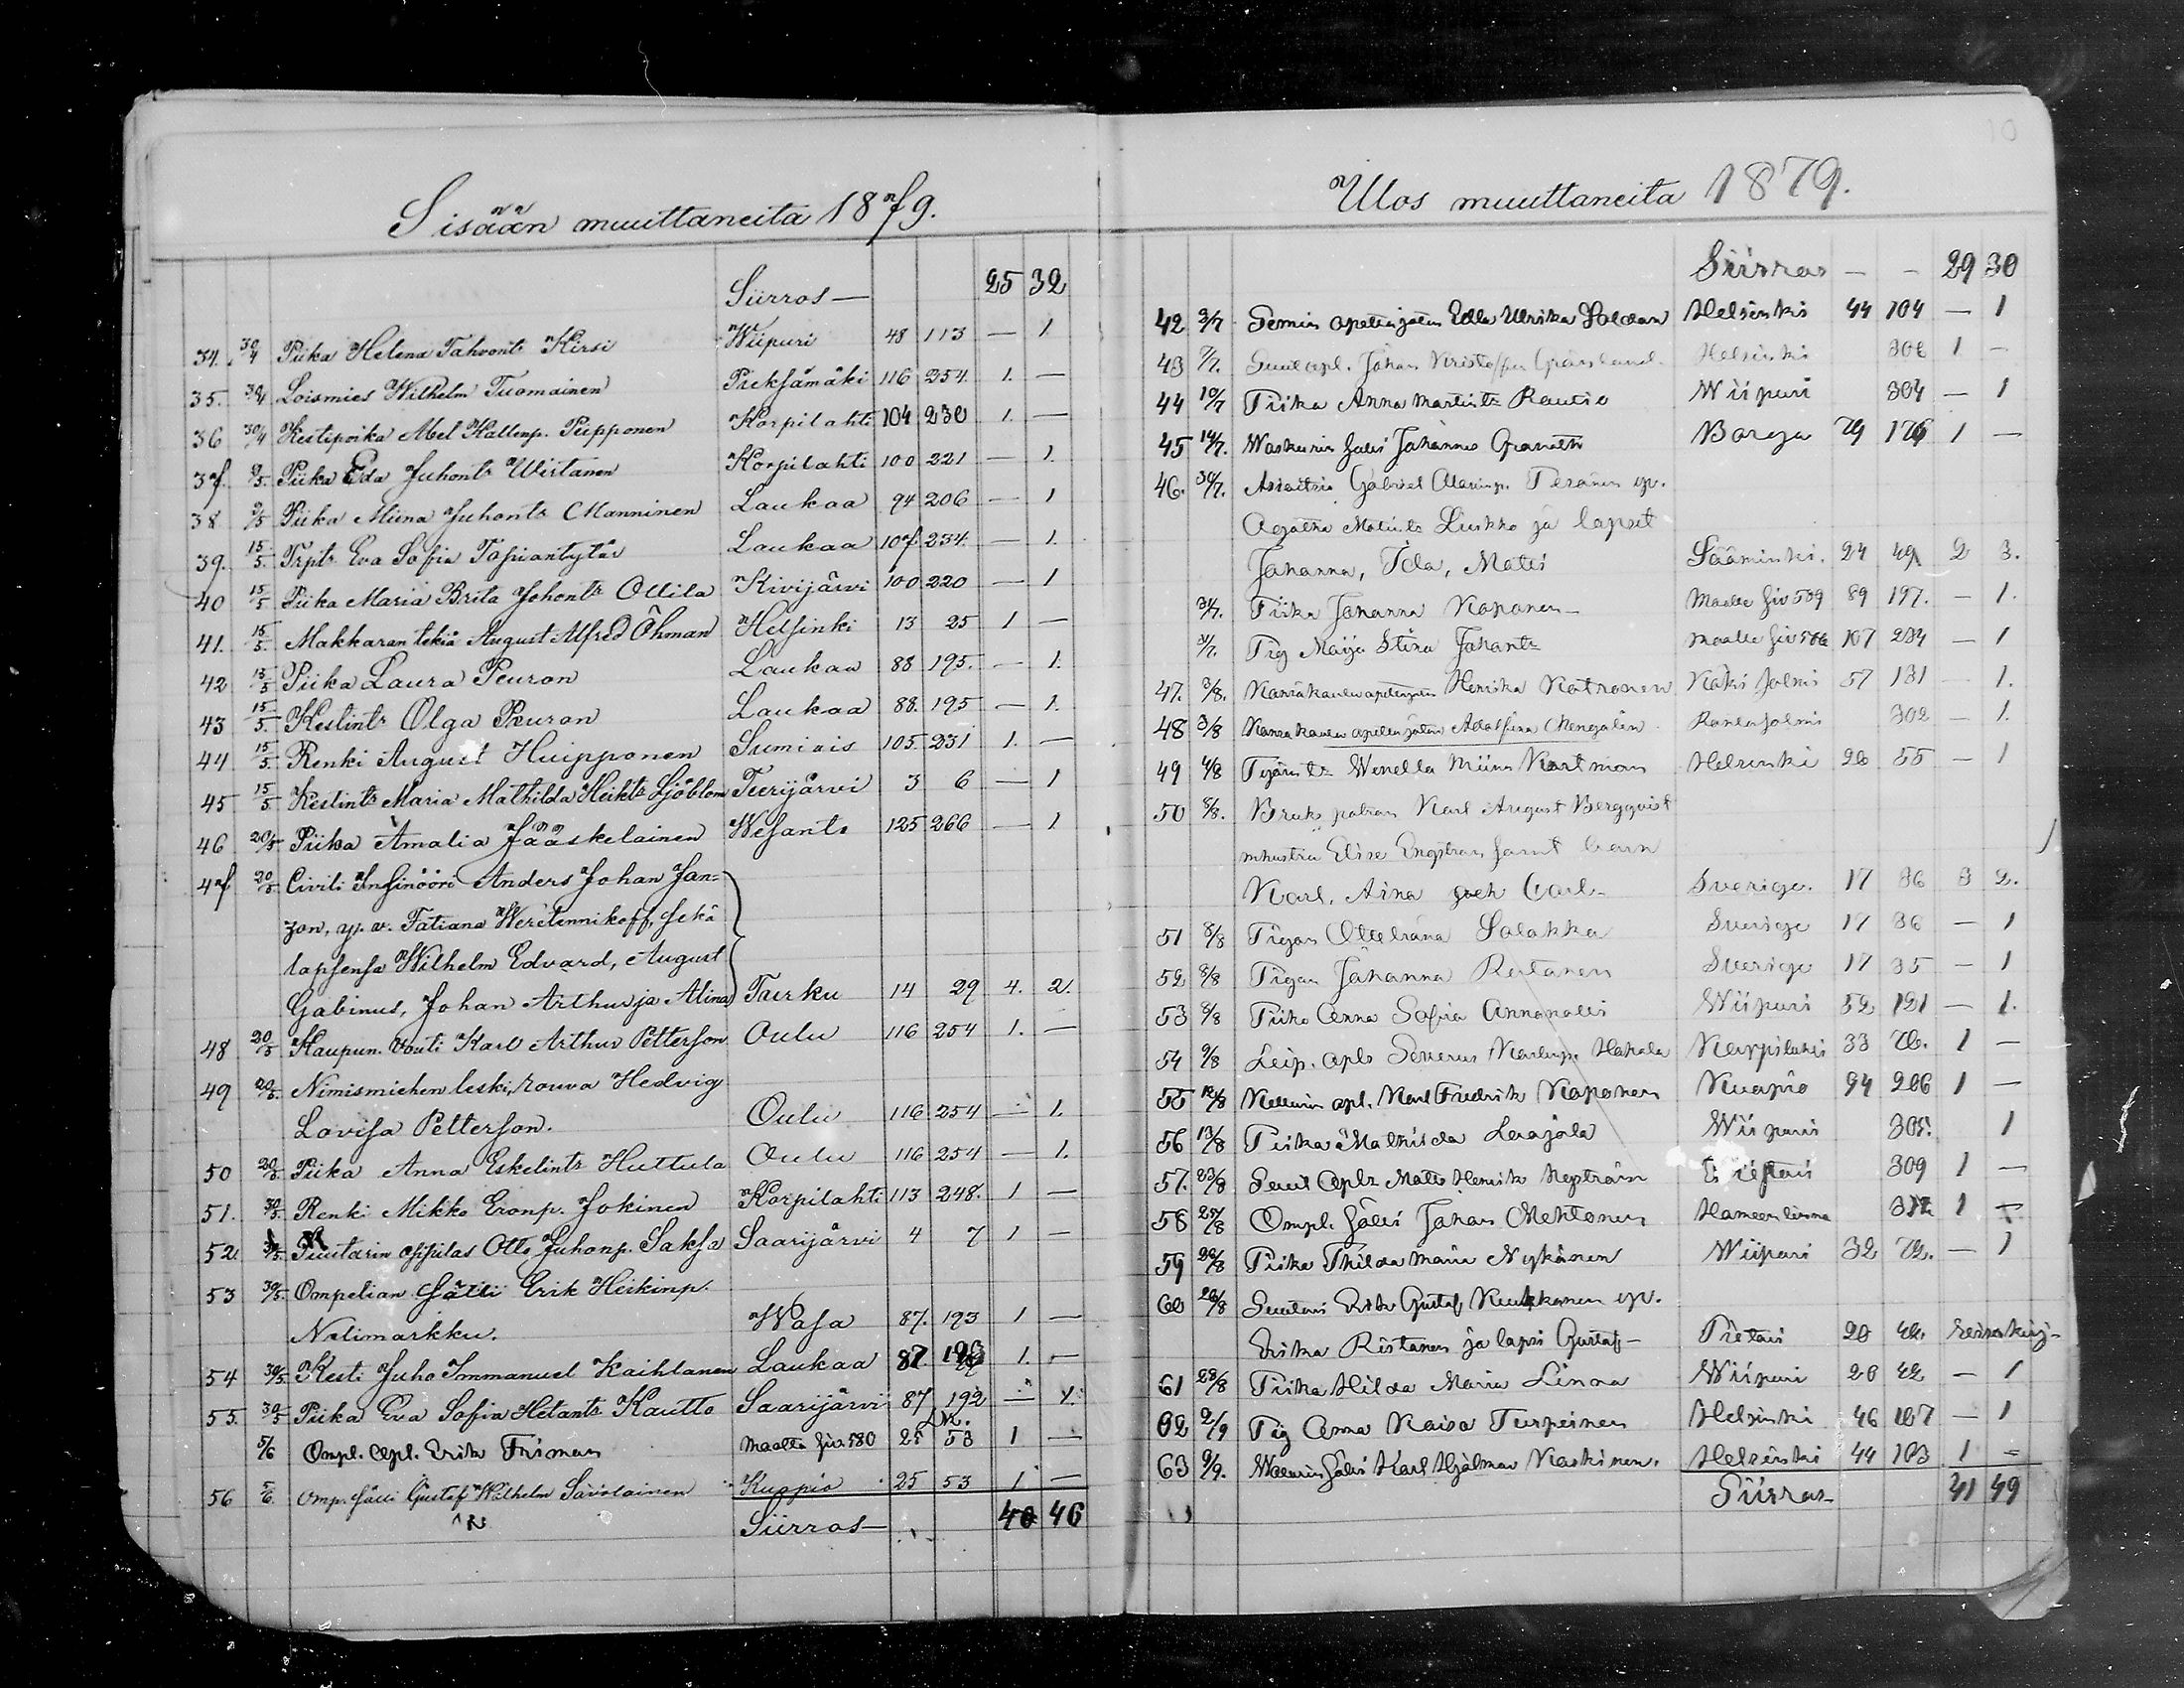 Sisään muuttaneita 1879.
Siirros — 25 32
34. 30/4 Piika Helena Tahvonts Kirsi Wiipuri 48 113 — 1.
35. 30/4 Loismies Wilhelm Tuomainen Pieksämäki 116 254. 1. —
36 30/4 Kestipoika Abel Kallenp. Piipponen Korpilahti 104 230 1. —
37. 9/5. Piika Eda Juhonts Wirtanen Korpilahti 100 221 — 1.
38. 9/5 Piika Miina Juhonts Manninen Laukaa 94 206 — 1
39. 15/5. Trpts Eva Sofia Tapiantytär Laukaa 107. 234. — 1.
40 15/5 Piika Maria Brita Johonts Ollila Kivijärvi 100 220 — 1
41. 15/5. Makkaran tekiä August Alfred Öhman Helsinki 13 25 1 —
42 15/5 Piika Laura Peuron Laukaa 88 195. — 1.
43 15/5. Kestints Olga Peuron Laukaa 88. 195 — 1.
44 15/5. Renki August Huipponen Sumiais 105. 231 1. —
45 15/5. Kestints Maria Mathilda Heikts Sjöblom Teerijärvi 3 6 — 1
46 20/5 Piika Amalia Jääskelainen Wesanto 125 266 — 1
47 20/5 Civili Insinööri Anders Johan Jan=
zon, y. v. Tatiana Weretennikoff, sekä
lapsensa Wilhelm Edvard, August
Gabinus, Johan Arthur ja Alina Turku 14 29 4. 2.
48 20/5 Kaupun. Vouti Karl Arthur Petterson Oulu 116 254 1. —
49 20/5. Nimismiehen leski, rouva Hedvig
Lovisa Petterson. Oulu 116 254 — 1.
50 20/5. Piika Anna Eskelints Huttula Oulu 116 254 — 1.
51. 30/5. Renki Mikko Eronp. Jokinen Korpilahti 113 248. 1 —
52 30/5. Suutarin oppilas Otto Juhonp. Saksa Saarijärvi 4 7 1 —
53 30/5. Ompelian Sälli Erik Heikinp.
Nelimarkku. Wasa 87. 193 1 —
54 30/5. Kesti Juho Immanuel Kaihlanen Laukaa 87. 193 1. —
55. 30/5 Piika Eva Sofia Hetants Kautto Saarijärvi 87 192 — 1.
5/6 Ompl. Opl. Erik Friman Maalta siv. 580 25 53 1 —
56 5/6. Omp. Sälli Gustaf Wilhelm Savolainen Kuopio 25 53 1 —
Siirros — 40 46
Ulos muuttaneita 1879.
Siirros — — 29 30
42 3/7 Edla Ulrika Soldan Helsinki 44 104 — 1
43 7/7. Suut. opl. Johan Kristoffer Helsinki 306 1 —
44 10/7 Piika Anna Martints Rautio Wiipuri 304 — 1
45 14/7. Waskurin Sälli Johannes Granath Borga 79 176 1 —
46. 30/7. Gabriel Teränen y. v.
Agatha Matints Liukko ja lapset
Johanna, Ida, Matti Sääminki. 24 49 2 3.
31/7. Piika Johanna Koponen — Maalle siv 509 89 197. — 1.
31/7. Pig Maija Stina Johants Maalle siv 107 234 — 1
47. 3/8. Kansakoulu opettajatar Henrika Kotronen Käkisalmi 57 131 — 1.
48 3/8 Kansa koulu opettajatar Adolfina Rantasalmi 302 — 1.
49 4/8 Wenella Miina Hartman Helsinki 26 55 — 1
50 8/8. Bruks patron Karl August Bergqvist
m hustru Elise Engström samt barn
Karl, Aina och Carl — Sverige. 17 36 3 2.
51 8/8 Pigan Ottiliana Salakka Sverige 17 36 — 1
52 8/8 Pigan Johanna Sverige 17 35 — 1
53 8/8 Piika Anna Sofia Wiipuri 52 121 — 1.
54 9/8 Leip. opl. Severus Hakala Korpilahti 33 76. 1 —
55 12/8 opl. Karl Fredrik Koponen Kuopio 94 206 1 —
56 13/8 Piika Mathilda Leajola Wiipuri 305. 1
57. 23/8 Suut Opl. Matts Henrik 309 1 —
58 25/8 Ompl. Sälli Johan Mehtonen Hameenlinna 312 1 —
59 26/8 Piika Thilda Maria Nykänen Wiipuri 32 72. — 1
60 26/8 Suutari Erik Gustaf y. v.
Eriika Ristanen ja lapsi Gustaf — Pietari 20 42.
61 28/8 Piika Hilda Maria Linna Wiipuri 20 42 — 1
62 2/9 Pig Anna Kaisa Turpeinen Helsinki 46 107 — 1
63 9/9. Sälli Karl Hjalmar Koskinen. Helsinki 44 103 1 —
Siirros — 41 49